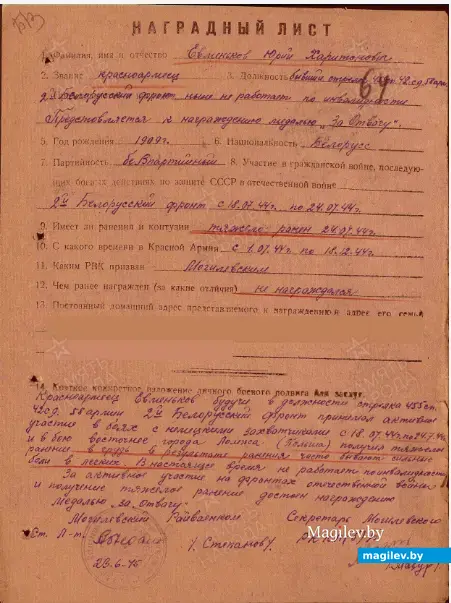 НАГРАДНЫЙ ЛИСТ
1. Фамилия, имя и отчество Евменьков Юрий Харитонович
2. Звание красноармеец 3. Должность бывший стрелок 455 сп. 42 сд. 50 арм.
2й Белорусский фронт ныне не работает по инвалидности
64
Представляется к награждению медалью „За Отвагу“.
5. Год рождения 1909 г. 6. Национальность Белорусс
7. Партийность беспартийный 8. Участие в гражданской войне, последую-
щих боевых действиях по защите СССР и отечественной войне
2й Белорусский фронт с 18.07.44г. по 24.07.44г.
9. Имеет ли ранения и контузии тяжело ранен 24.07.44г.
10. С какого времени в Красной Армии с 1.07.44г. по 18.12.44г.
11. Каким РВК призван Могилевским
12. Чем ранее награжден (за какие отличия) не награждался
13. Постоянный домашний адрес представляемого к награждению и адрес его семьи
14. Краткое конкретное изложение личного боевого подвига или заслуг.
Красноармеец Евменьков будучи в должности стрелка 455 сп.
42 сд. армии 2й Белорусский фронт принимал активное
участие в боях с немецкими захватчиками с 18.07.44г. по 24.7.44г.
и в бою восточнее города получил тяжелое
ранение в грудь в результате ранения часто бывают сильные
боли в легких. В настоящее время не работает по инвалидности
За активное участие на фронтах отечественной войны
и получение тяжелое ранение достоин награждению
медалью „За Отвагу“.
Могилевский Райвоенком Секретарь Могилевского
Ст. Л-т. /Степанов/.
Magilev.by
28-6-46 /Мазур/
magilev.by